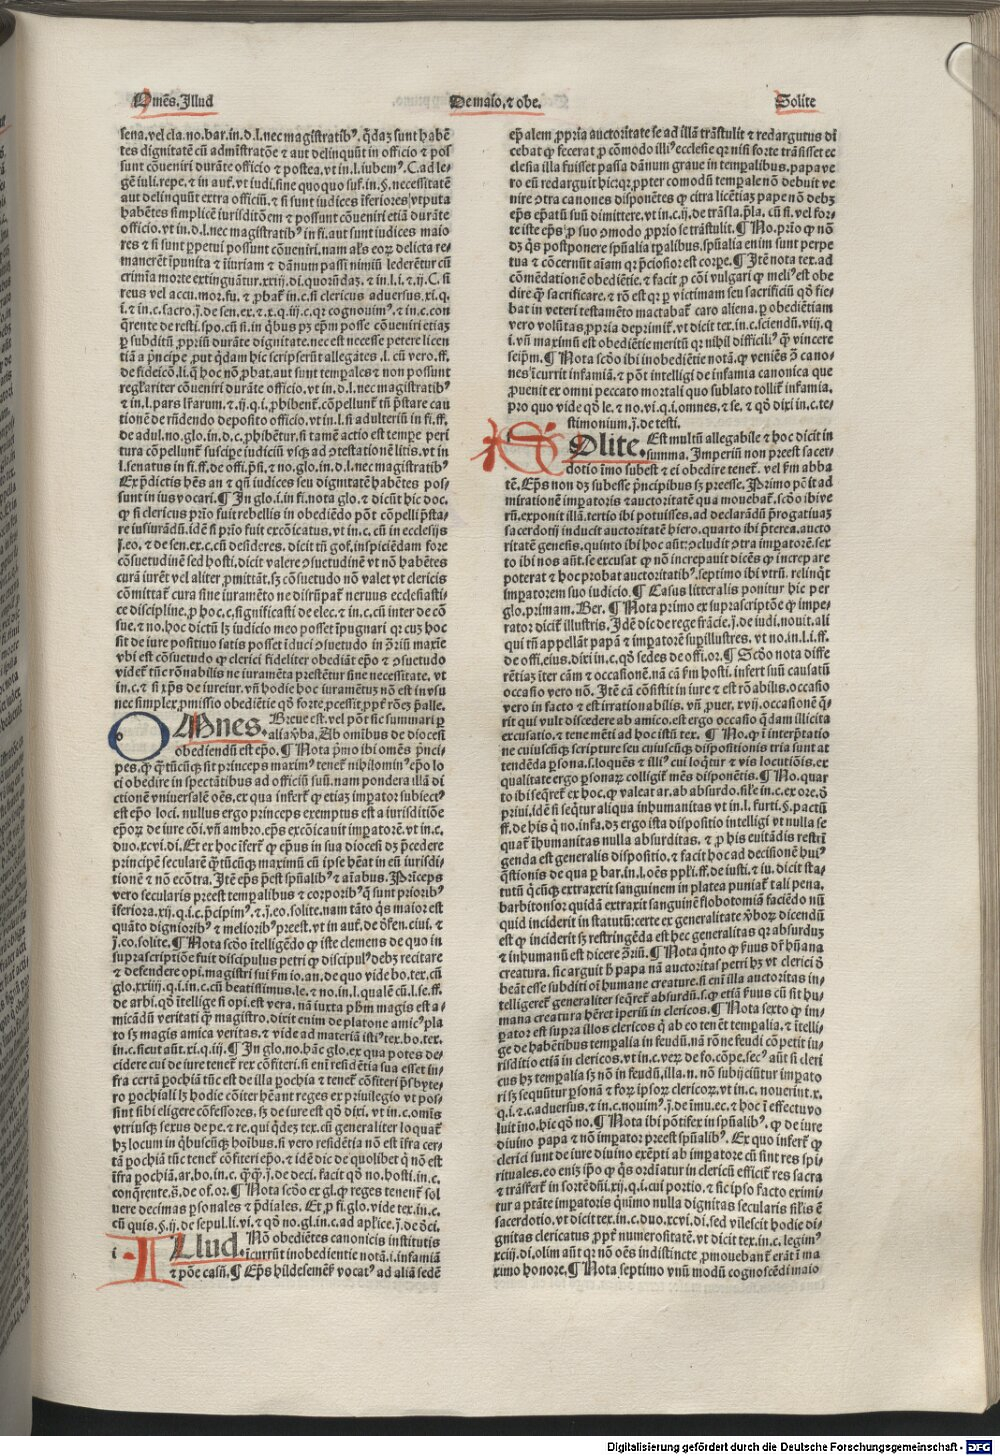 Omēs. Illud
De maio. ⁊ obe.
Solite
sena. vel cla. no. bar. in. d. l. nec magistratibꝰ. q̄daꝫ sunt habē
tes dignitatē cū admīstratōe ⁊ aut delinquūt in officio ⁊ pos
sunt cōueniri durāte officio ⁊ postea. vt in. l. iubemꝰ. C. ad le-
gē iuli. repe. ⁊ in aut. vt iudi. sine quoquo suf. in. §. necessitatē
aut delinquūt extra officiū. ⁊ si sunt iudices īferiores vtputa
habētes simplicē iurisditōem ⁊ possunt cōueniri etiā durāte
officio. vt in. d. l. nec magistratibꝰ in fi. aut sunt iudices maio
res ⁊ si sunt ꝑpetui possunt cōueniri. nam al̄s eoꝝ delicta re-
manerēt īpunita ⁊ īiuriam ⁊ dānum passi nimiū lederētur cū
crimīa morte extinguātur. xxiij. di. quorūdaꝫ. ⁊ in. l. i. ⁊. ij. C. si
reus vel accu. mor. fu. ⁊ ꝓbat in. c. si clericus aduersus. xi. q.
i. ⁊ in. c. sacro. j. de sen. ex. ⁊. x. q. iij. c. qz cognouimꝰ. ⁊ in. c. con
q̄rente de resti. spo. cū si. in q̄bus pꝫ ep̄m posse cōueniri etiaꝫ
ꝑ subditū ꝓpriū durāte dignitate. nec est necesse petere licen
tiā a p̄ncipe ꝓut q̄dam hic scripserūt allegātes. l. cū vero. ff.
de fideicō. li. q̄ hoc nō ꝓbat. aut sunt tempales ⁊ non possunt
regl̄ariter cōueniri durāte officio. vt in. d. l. nec magistratibꝰ
⁊ in. l. pars lr̄arum. ⁊. ij. q. i. ꝓhibent. cōpellunt tn̄ p̄stare cau
tionē de rn̄dendo deposito officio. vt in. l. si adulteriū in fi. ff.
de adul. no. glo. in. d. c. ꝓhibētur. si tamē actio est tempe peri
tura cōpellunt suscipe iudiciū vsqꝫ ad ↄtestationē litis. vt in
l. senatus in fi. ff. de offi. p̄si. ⁊ no. glo. in. d. l. nec magistratibꝰ
Ex p̄dictis hēs an ⁊ qn̄ iudices seu dignitatē habētes pos-
sunt in ius vocari. ¶ In glo. i. in fi. nota glo. ⁊ dicūt hic doc.
ꝙ si clericus prīo fuit rebellis in obediēdo pōt cōpelli p̄sta-
re iusiurādū. idē si prīo fuit excōicatus. vt in. c. in ecclesijs
j. eo. ⁊ de sen. ex. c. cū desideres. dicit tn̄ gof. inspiciēdam fore
cōsuetudinē sed hosti. dicit valere ↄsuetudinē vt nō habētes
curā iurēt vel aliter ꝑmittāt. sꝫ cōsuetudo nō valet vt clericis
cōmittat cura sine iuramēto ne disrūpat neruus ecclesiasti-
ce discipline. ꝓ hoc. c. significasti de elec. ⁊ in. c. cū inter de cō
sue. ⁊ no. hoc dictū lꝫ iudicio meo posset īpugnari qz cuꝫ hoc
sit de iure positiuo satis posset īduci ↄsuetudo in ↄriū maxīe
vbi est cōsuetudo ꝙ clerici fideliter obediāt ep̄o ⁊ ↄsuetudo
videt tūc rōnabilis ne iuramēta prestētur sine necessitate. vt
in. c. ⁊ si xp̄s de iureiur. vn̄ hodie hoc iuramētuꝫ nō est in vsu
nec simplex ꝓmissio obediētie qd̄ forte ꝓcessit ꝓpt̄ rōeꝫ p̄alle.
OMnes. Breue est. vel pōt sic summari ꝑ
alia v̄ba. Ab omībus de diocesi
obediendū est ep̄o. ¶ Nota p̄mo ibi omēs p̄nci-
pes. ꝙ q̄tūcūqꝫ sit princeps maximꝰ tenet nihilominꝰ ep̄o lo
ci obedire in spectātibus ad officiū suū. nam pondera illā di
ctionē vniuersalē oēs. ex qua infert ꝙ etiaꝫ imꝑator subiectꝰ
est ep̄o loci. nullus ergo princeps exemptus est a iurisditiōe
ep̄oꝝ de iure cōi. vn̄ ambro. ep̄s excōicauit imꝑatorē. vt in. c.
duo. xcvi. di. Et ex hoc īfert ꝙ ep̄us in sua diocesi dꝫ p̄cedere
principē secularē q̄tūcūqꝫ maximū cū ipse hēat in eū iurisdi-
tionē ⁊ nō ecōtra. Itē ep̄s p̄est spūalibꝰ ⁊ aīabus. Prīceps
vero secularis preest tempalibus ⁊ corporibꝰ q̄ sunt prioribꝰ
īferiora. xij. q. i. c. p̄cipimꝰ. ⁊. j. eo. solite. nam tāto q̄s maior est
quāto dignioribꝰ ⁊ melioribꝰ preest. vt in aut. de d̄fen. ciui. ⁊
j. eo. solite. ¶ Nota scd̄o ītelligēdo ꝙ iste clemens de quo in
suprascriptiōe fuit discipulus petri ꝙ discipulꝰ debꝫ recitare
⁊ defendere opi. magistri sui km̄ io. an. de quo vide bo. tex. cū
glo. xxiiij. q. i. in. c. cū beatissimus. le. ⁊ no. in. l. qualē cū. l. se. ff.
de arbi. qd̄ ītellige si opi. est vera. nā iuxta pb̄m magis est a-
micādū veritati q̄ magistro. dixit enim de platone amicꝰ pla
to sꝫ magis amica veritas. ⁊ vide ad materiā istiꝰ tex. bo. tex.
in. c. sicut aūt. xi. q. iij. ¶ In glo. no. hāc glo. ex qua potes de-
cidere cui de iure tenet rex cōfiteri. si eni residētia sua esset in-
fra certā ꝓchiā tūc est de illa ꝓchia ⁊ tenet cōfiteri p̄sbyte-
ro ꝓchiali lꝫ hodie cōiter hēant reges ex priuilegio vt pos-
sint sibi eligere cōfessores. sꝫ de iure est qd̄ dixi. vt in. c. om̄is
vtriusqꝫ sexus de pe. ⁊ re. qui q̄deꝫ tex. cū generaliter loquat
hꝫ locum in q̄buscūqꝫ hoībus. si vero residētia nō est īfra cer-
tā ꝓchiā tūc tenet cōfiteri ep̄o. ⁊ idē dic de quolibet q̄ nō est
īfra ꝓchiā. ar. bo. in. c. q̄q̄. j. de deci. facit qd̄ no. hosti. in. c.
conq̄rente. s̄. de of. or. ¶ Nota scd̄o ex gl. ꝙ reges tenent sol
uere decimas ꝑsonales ⁊ p̄diales. Et ꝓ fi. glo. vide tex. in. c.
cū quis. §. ij. de sepul. li. vi. ⁊ qd̄ no. gl. in. c. ad apl̄ice. j. de d̄ci.
ILlud. Nō obediētes canonicis institutis
īcurrūt inobedientie notā. i. infamiā
⁊ pōe casū. ¶ Ep̄s hildesemēs vocatꝰ ad aliā sedē
ep̄alem ꝓpria auctoritate se ad illā trāstulit ⁊ redargutus di
cebat ꝙ fecerat ꝓ cōmodo illiꝰ ecclesie qz nisi forte trāsisset ec
clesia illa fuisset passa dānum graue in tempalibus. papa ve
ro eū redarguit hic qꝫ ꝓpter comodū tempale nō debuit ve
nire ↄtra canones disponētes ꝙ citra licētiaꝫ pape nō debꝫ
ep̄s ep̄atū suū dimittere. vt in. c. ij. de trās̄la. p̄la. cū si. vel for-
te iste ep̄s ꝓ suo ↄmodo ꝓprio se trāstulit. ¶ No. prīo ꝙ nō
dꝫ q̄s postponere spūalia tꝑalibus. spūalia enim sunt perpe
tua ⁊ cōcernūt aīam qz p̄ciosior est corꝑe. ¶ Itē nota tex. ad
cōmēdationē obediētie. ⁊ facit ꝓ cōi vulgari ꝙ meliꝰ est obe
dire q̄ sacrificare. ⁊ rō est qz ꝑ victimam seu sacrificiū qd̄ fie-
bat in veteri testamēto mactabat caro aliena. ꝑ obediētiam
vero volūtas ꝓpria deprimit. vt dicit tex. in. c. sciendū. viij. q
i. vn̄ maximū est obediētie meritū qz nihil difficiliꝰ q̄ vincere
seip̄m. ¶ Nota scd̄o ibi inobediētie notā. ꝙ veniēs ↄ̄ cano-
nes īcurrit infamiā. ⁊ pōt intelligi de infamia canonica que
ꝓuenit ex omni peccato mortali quo sublato tollit infamia.
pro quo vide qd̄ le. ⁊ no. vi. q. i. omnes. ⁊ se. ⁊ qd̄ dixi in. c. te-
stimonium. j. de testi.
SOlite. Est multū allegabile ⁊ hoc dicit in
summa. Imperiū non preest sacer-
dotio īmo subest ⁊ ei obedire tenet. vel km̄ abba
tē. Ep̄s non dꝫ subesse p̄ncipibus sꝫ preesse. Primo pōit ad
mirationē imꝑatoris ⁊ auctoritatē qua mouebat. scd̄o ibi ve
rū. exponit illā. tertio ibi potuisses. ad declarādū p̄rogatiuaꝫ
sacerdotij inducit auctoritatē hiero. quarto ibi p̄terea. aucto
ritatē genesis. quinto ibi hoc aūt ↄcludit ↄtra imꝑatorē. sex
to ibi nos aūt. se excusat ꝙ nō increpauit dicēs ꝙ increpare
poterat ⁊ hoc probat auctoritatibꝰ. septimo ibi vtrū. relinqt
imꝑatorem suo iudicio. ¶ Casus litteralis ponitur hic per
glo. primam. Ber. ¶ Nota primo ex suprascriptōe ꝙ impe-
rator dicit illustris. Idē dic de rege frācie. j. de iudi. nouit. ali
qui tn̄ appellāt papā ⁊ imꝑatorē suꝑillustres. vt no. in. l. i. ff.
de offi. eius. dixi in. c. qd̄ sedes de offi. or. ¶ Scd̄o nota diffe
rētiaꝫ īter cām ⁊ occasionē. nā cā km̄ hosti. infert suū causatū
occasio vero nō. Itē cā cōsistit in iure ⁊ est rōabilis. occasio
vero in facto ⁊ est irrationabilis. vn̄ ꝓuer. xvij. occasionē q̄-
rit qui vult discedere ab amico. est ergo occasio q̄dam illicita
excusatio. ⁊ tene mēti ad hoc istū tex. ¶ No. ꝙ ī interp̄tatio
ne cuiuscūqꝫ scripture seu cuiuscūqꝫ dispositionis tria sunt at
tendēda ꝑsona. s. loquēs ⁊ illiꝰ cui loqtur ⁊ vis locutiōis. ex
qualitate ergo ꝑsonaꝝ colligit mēs disponētis. ¶ No. quar
to ibi seqret ex hoc. ꝙ valeat ar. ab absurdo. sile in. c. ex ore. d̄
priui. idē si seq̄tur aliqua inhumanitas vt in. l. furti. §. pactū
ff. de his q̄ no. infa. dꝫ ergo ista dispositio intelligi vt nulla se
quat īhumanitas nulla absurditas. ⁊ ꝓ his euitādis restri
genda est generalis dispositio. ⁊ facit hoc ad decisionē huiꝰ
q̄stionis de qua ꝑ bar. in. l. oēs ppl̄i. ff. de iusti. ⁊ iu. dicit sta-
tutū q̄cūqꝫ extraxerit sanguinem in platea puniat tali pena.
barbitonsor quidā extraxit sanguinē flobotomiā faciēdo nū
quid inciderit in statutū: certe ex generalitate v̄boꝝ dicendū
est ꝙ inciderit sꝫ restringēda est hec generalitas qz absurduꝫ
⁊ inhumanū est dicere ↄriū. ¶ Nota q̄nto ꝙ fuus dr̄ hūana
creatura. sic arguit h̄ papa nā auctoritas petri hꝫ vt clerici d̄
beāt esse subditi oī humane creature. si eni illa auctoritas in-
telligeret generaliter seqret absurdū. s. ꝙ etiā fuus cū sit hu-
mana creatura hēret īperiū in clericos. ¶ Nota sexto ꝙ im-
ꝑator est supra illos clericos q̄ ab eo tenēt tempalia. ⁊ ītelli-
ge de habētibus tempalia in feudū. nā rōne feudi cōpetit iu-
risditio etiā in clericos. vt in. c. verꝝ de fo. cōpe. secꝰ aūt si cleri
cus hꝫ tempalia sꝫ nō in feudū. illa. n. nō subijciūtur imꝑato
ri sꝫ sequūtur ꝑsonā ⁊ foꝝ ipsoꝝ clericoꝝ. vt in. c. nouerint. x.
q. i. ⁊. c. aduersus. ⁊ in. c. nouimꝰ. j. de īmu. ec. ⁊ hoc ī effectu vo
luit īno. hic qd̄ no. ¶ Nota ibi pōtifex in spūalibꝰ. ꝙ de iure
diuino papa ⁊ nō imꝑator preest spūalibꝰ. Ex quo infert ꝙ
clerici sunt de iure diuino exēpti ab imꝑatore cū sint res spi-
rituales. eo eniꝫ ip̄o ꝙ q̄s ordīatur in clericū efficit res sacra
⁊ trāsfert in sortē dn̄i. xij. q. i. cui portio. ⁊ sic ipso facto eximi
tur a ptāte imꝑatoris q̄nimo nulla dignitas secularis silis ē
sacerdotio. vt dicit tex. in. c. duo. xcvi. di. sed vilescit hodie di-
gnitas clericatus ꝓpt̄ numerositatē. vt dicit tex. in. c. legimꝰ
xciij. di. olim aūt qz nō oēs indistincte ꝓmouebant erāt ī ma
ximo honore. ¶ Nota septimo vnū modū cognoscēdi maio
Digitalisierung gefördert durch die Deutsche Forschungsgemeinschaft - DFG